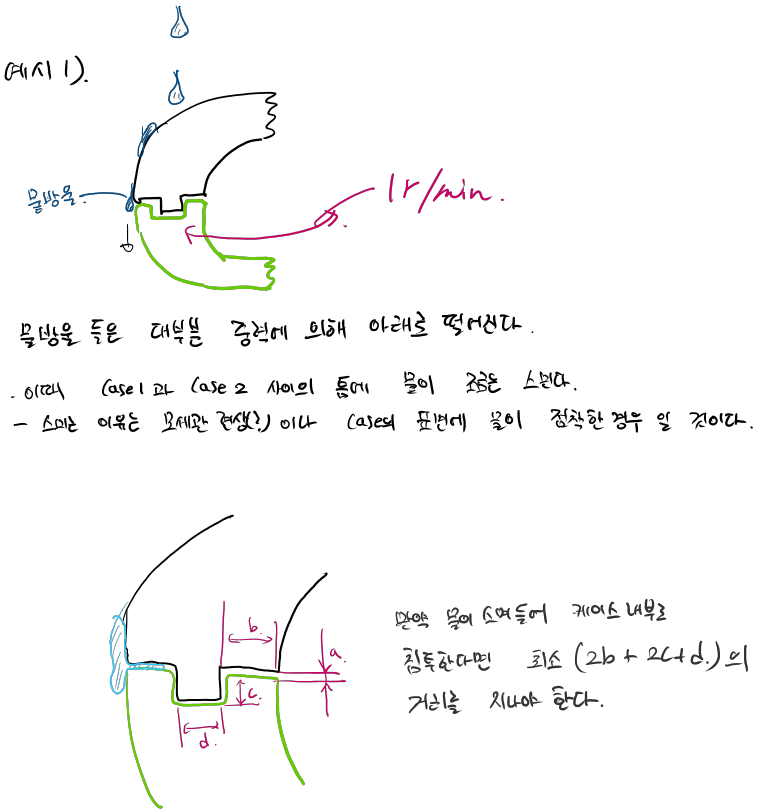 예시 1).
물방울.
1r/min.
물방울 들은 대부분 중력에 의해 아래로 떨어진다.
. 이때 Case 1 과 Case 2 사이의 틈에 물이 조금은 스민다.
- 스미는 이유는 모세관 현상(?) 이나 Case의 표면에 물이 점착한 경우 일 것이다.
b.
a.
c.
d.
만약 물이 스며들어 케이스 내부로
침투한다면 최소 (2b + 2c + d.) 의
거리를 지나야 한다.